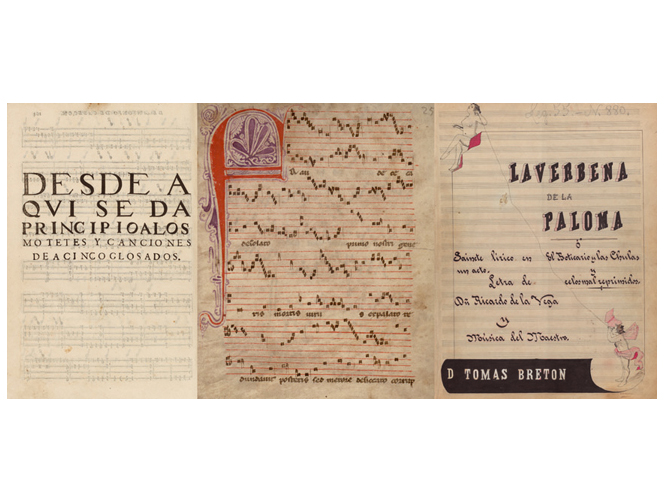 DESDE A
QVI SE DA
PRINCIPIO A LOS
MOTETES Y CANCIONES
DE A CINCO GLOSADOS.
25
primo nostri gene
ris mortis
posteris sed
LA VERBENA
DE LA
PALOMA
ó
Sainete lírico en El Boticario y las Chulas
un acto. y
Letra de celos mal reprimidos.
Dn Ricardo de la Vega
y
Música del Maestro.
D TOMAS BRETON